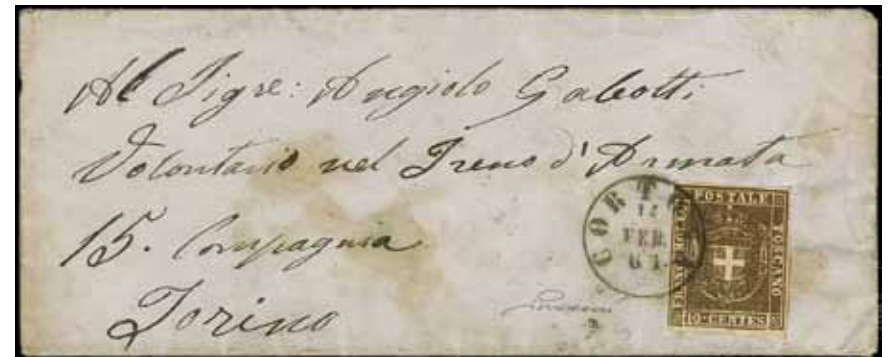 Al Sigre: Angiolo Galeotti
Volontario nel Treno d'Armata
15. Compagnia
Torino
CORTO
14
FEB.
61
FRANCOBOLLO
POSTALE
TOSCANO
10 CENTES